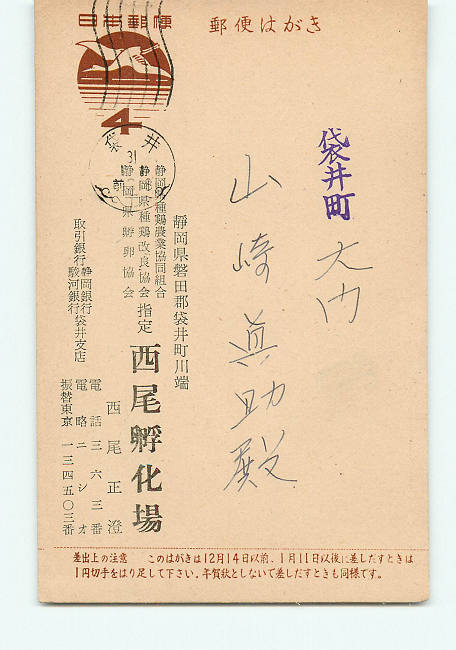 日本郵便
郵便はがき
4
袋井
31
前
袋井町
大内
山崎眞助殿
静岡県磐田郡袋井町川端
静岡県種鶏農業協同組合
静岡県種鶏改良協会
静岡県孵卵協会
指定
西尾孵化場
西尾正澄
電話三六三番
電略ニシオ
振替東京一三四五〇三番
取引銀行
静岡銀行
駿河銀行
袋井支店
差出上の注意 このはがきは12月14日以前、1月11日以後に差しだすときは
1円切手をはり足して下さい。年賀状としないで差しだすときも同様です。